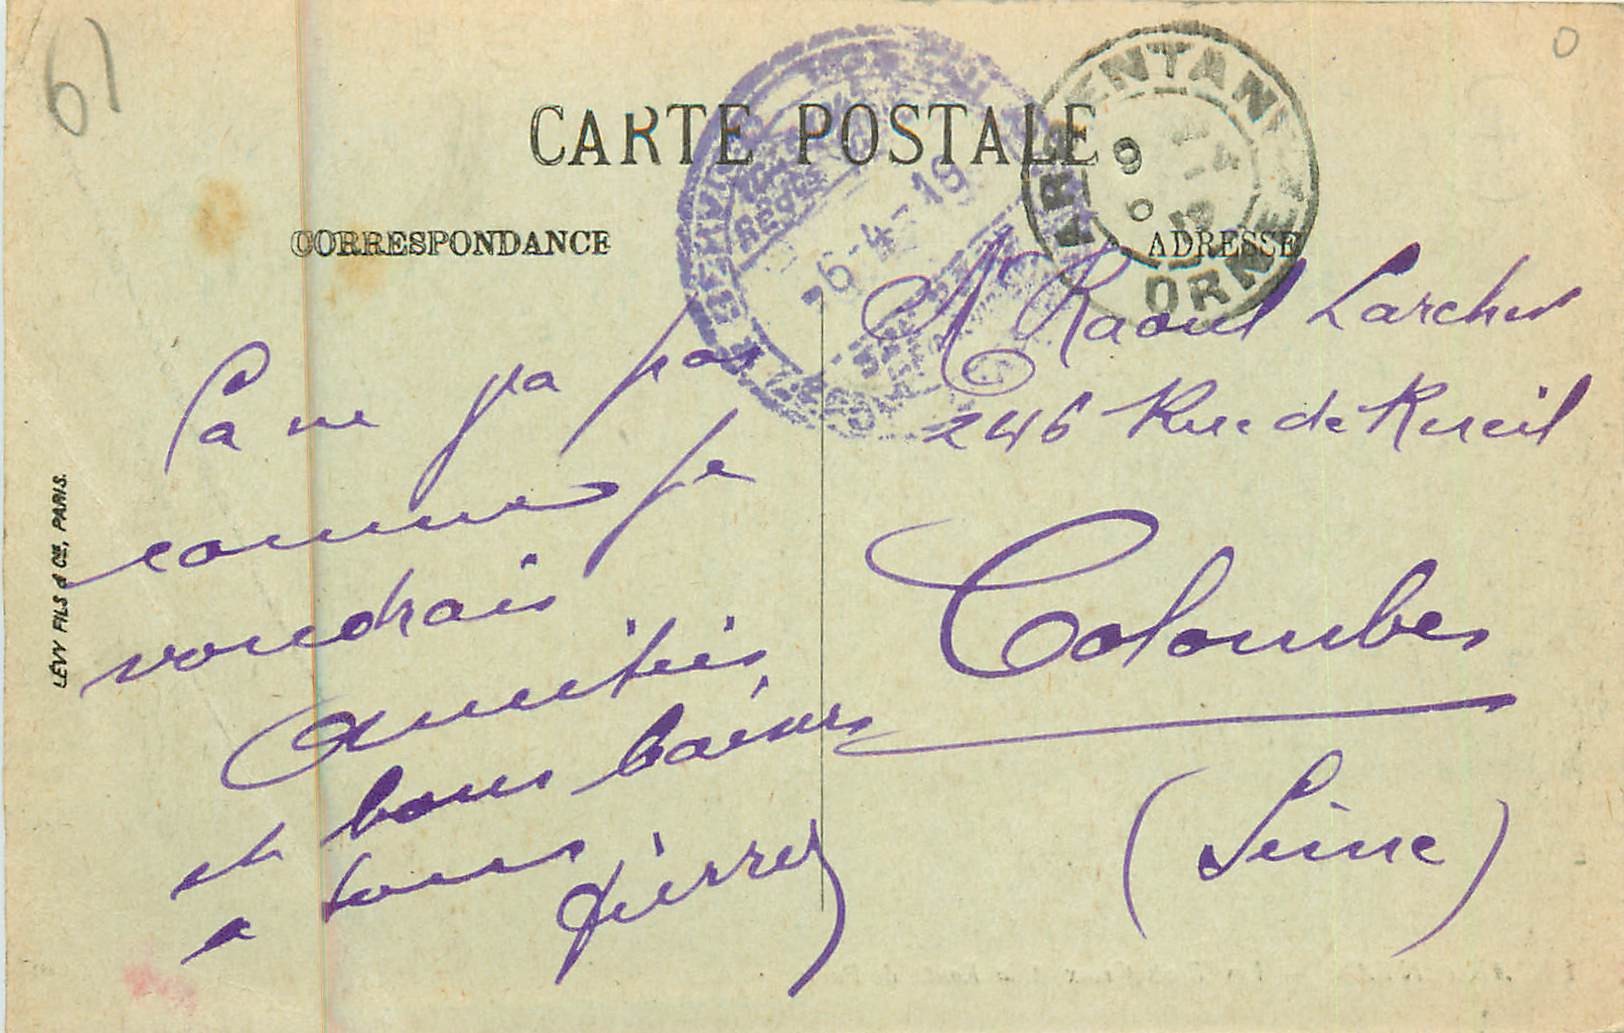 61
O
CARTE POSTALE
CORRESPONDANCE
ADRESSE
ARGENTAN
ORNE
-6-4-19
Ça ne va pas
comme je
voudrais
Amitiés
et bons baisers
a tous
Pierre
Mr Raoul Larcher
246 Rue de Rueil
Colombes
(Seine)
LÉVY FILS & CIE, PARIS.